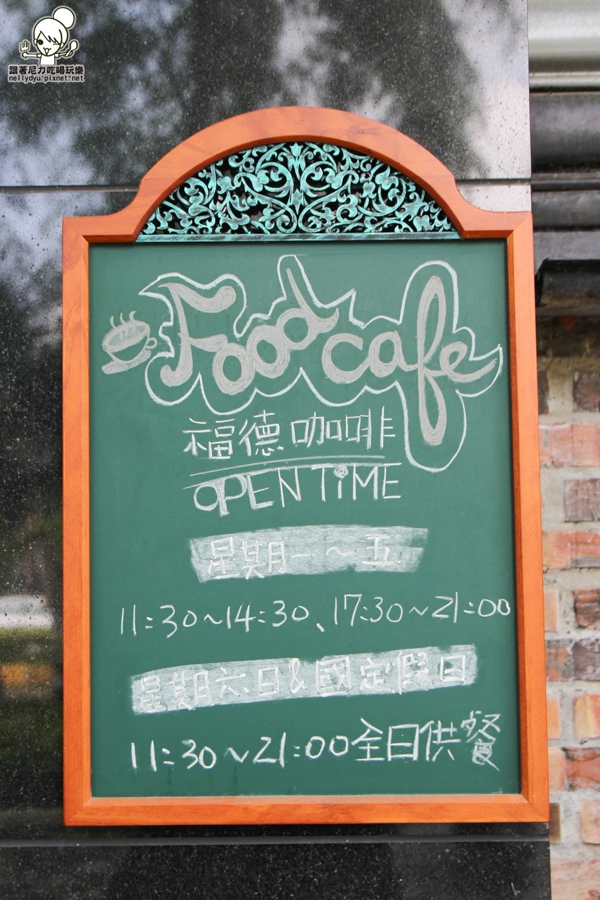 跟著尼力吃喝玩樂
nellydyu.pixnet.net
Food cafe
福德咖啡
OPEN TiME
星期一~五
11:30~14:30、17:30~21:00
星期六日&國定假日
11:30~21:00全日供餐